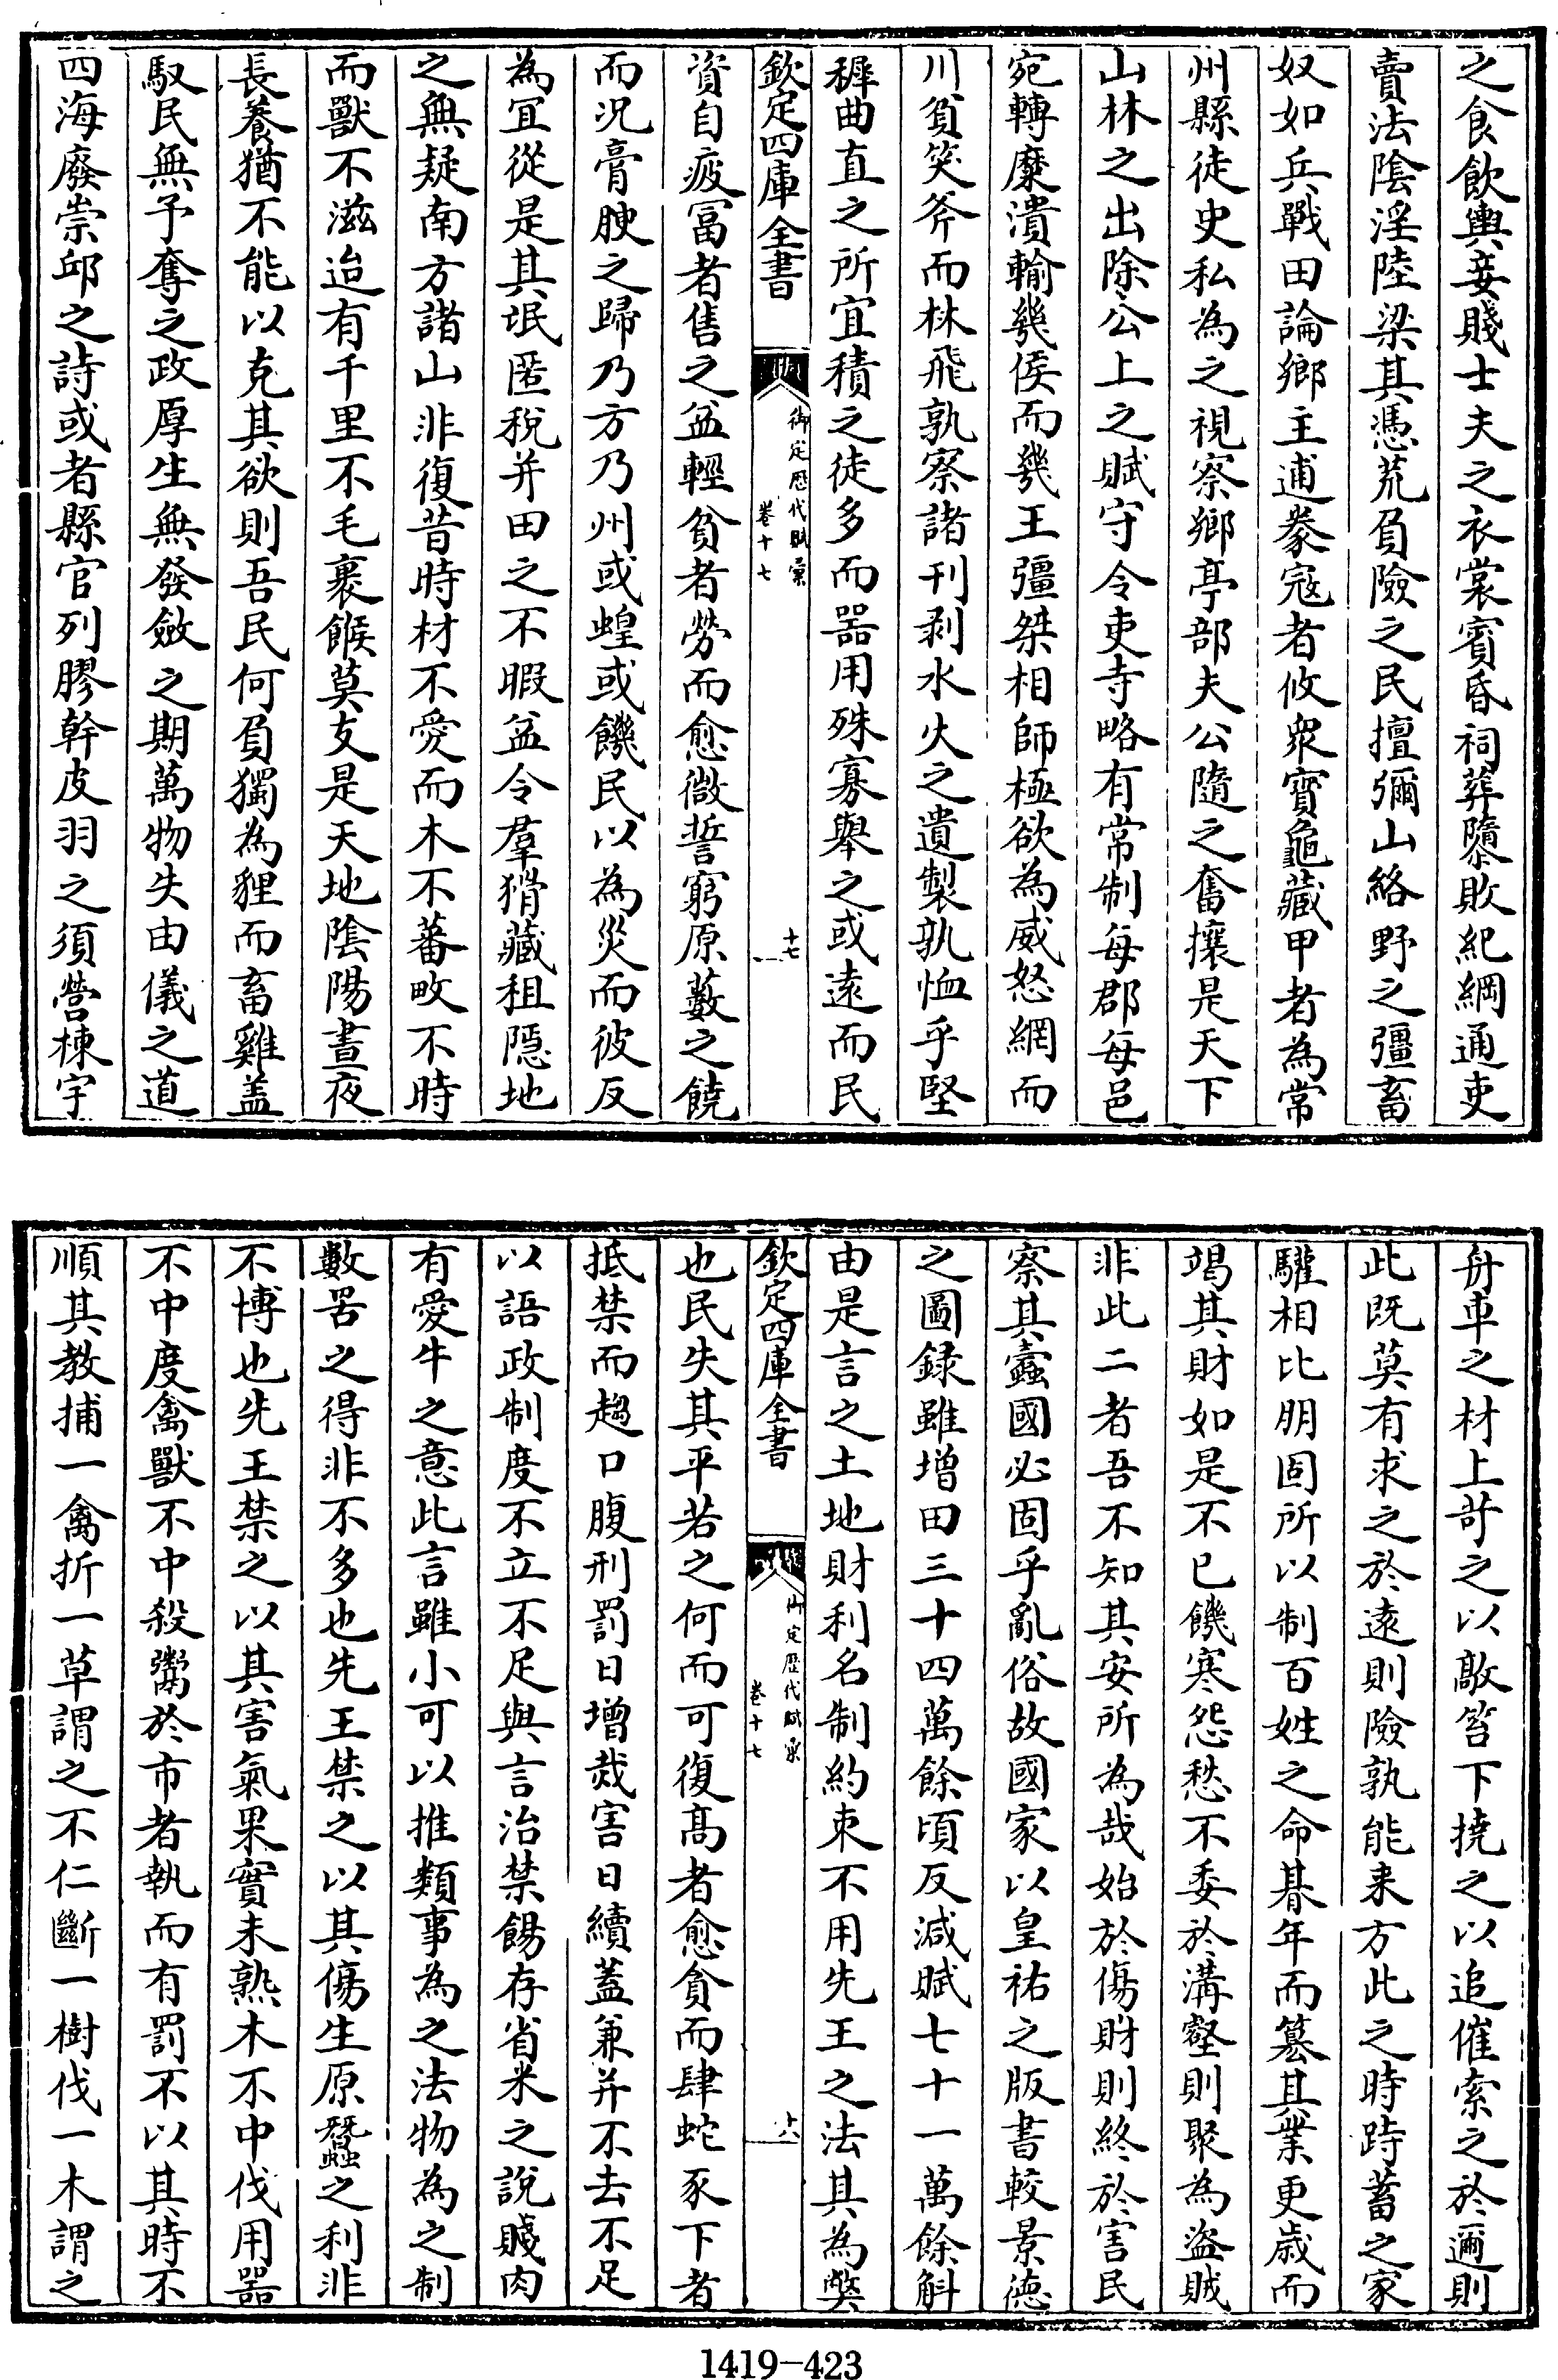 之食飲輿妾賤士夫之衣裳賓昏祠葬隳敗紀綱通吏
賣法陰淫陸梁其憑荒負險之民擅彌山絡野之彊畜
奴如兵戰田論鄉主逋豢寇者攸眾寳龜藏甲者為常
州縣徒史私為之視察鄉亭部夫公隨之奮攘是天下
山林之出除公上之賦守令吏寺略有常制每郡每邑
宛轉糜潰輸幾侯而幾王彊桀相師極欲為威怒網而
川貧笑斧而林飛孰察諸刋剥水火之遺製孰恤乎堅
穉曲直之所宜積之徒多而器用殊寡舉之或遠而民
欽定四庫全書
御定歴代賦彙
卷十七
十七
資自疲冨者售之益輕貧者勞而愈微誓窮原藪之饒
而况膏腴之歸乃方乃州或蝗或饑民以為災而彼反
為宜從是其氓匿税并田之不暇益令羣猾藏租隠地
之無疑南方諸山非復昔時材不愛而木不蕃畋不時
而獸不滋迨有千里不毛裹餱莫支是天地陰陽晝夜
長養猶不能以克其欲則吾民何負獨為貍而畜雞盖
馭民無予奪之政厚生無發斂之期萬物失由儀之道
四海廢崇邱之詩或者縣官列膠幹皮羽之須營棟宇
舟車之材上苛之以敲笞下撓之以追催索之於邇則
此既莫有求之於遠則險孰能来方此之時跱蓄之家
驩相比朋固所以制百姓之命朞年而簒其業更歲而
竭其財如是不已饑寒怨愁不委於溝壑則聚為盜賊
非此二者吾不知其安所為哉始於傷財則終於害民
察其蠧國必固乎亂俗故國家以皇祐之版書較景徳
之圖録雖增田三十四萬餘頃反減賦七十一萬餘斛
由是言之土地財利名制約束不用先王之法其為弊
欽定四庫全書
御定歴代賦彙
卷十七
十八
也民失其平若之何而可復髙者愈貪而肆蛇豕下者
抵禁而趨口腹刑罰日增烖害日續蓋兼并不去不足
以語政制度不立不足與言治禁餳存省米之說賤肉
有愛牛之意此言雖小可以推類事為之法物為之制
數罟之得非不多也先王禁之以其傷生原蠶之利非
不博也先王禁之以其害氣果實未熟木不中伐用器
不中度禽獸不中殺鬻於市者執而有罰不以其時不
順其教捕一禽折一草謂之不仁斷一樹伐一木謂之
1419-423